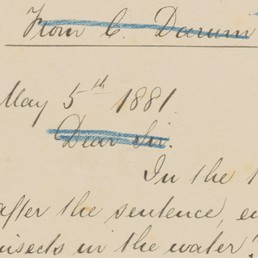 From C. Darwin
May 5th 1881.
Dear Sir.
In the
after the sentence,
insects in the water